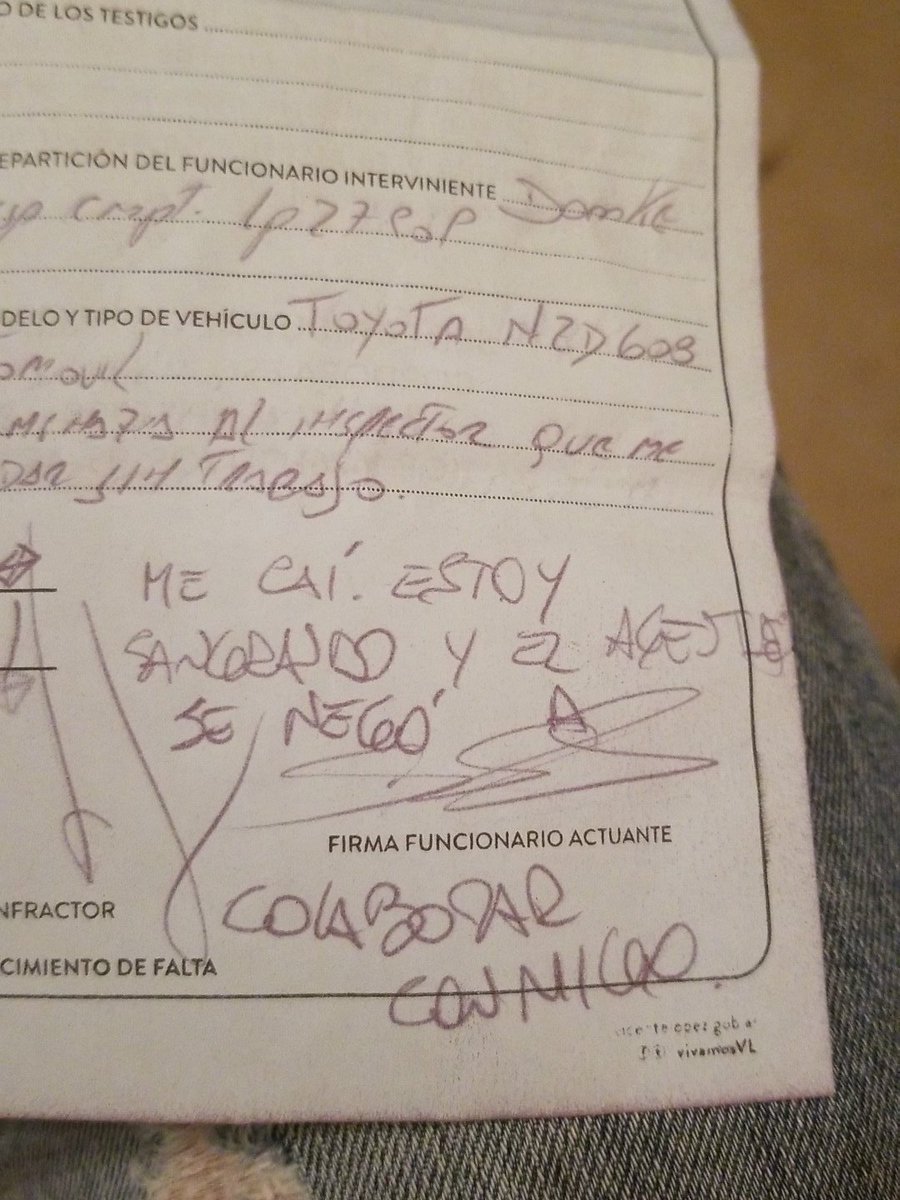 O DE LOS TESTIGOS
EPARTICIÓN DEL FUNCIONARIO INTERVINIENTE
DELO Y TIPO DE VEHÍCULO TOYOTA NZD609
Al inspector que me
DAR sin Trabajo.
ME CAÍ. ESTOY
SANGRANDO Y EL AGENTE
SE NEGÓ A
FIRMA FUNCIONARIO ACTUANTE
COLABORAR
CONMIGO.
NFRACTOR
CIMIENTO DE FALTA
vivamosVL